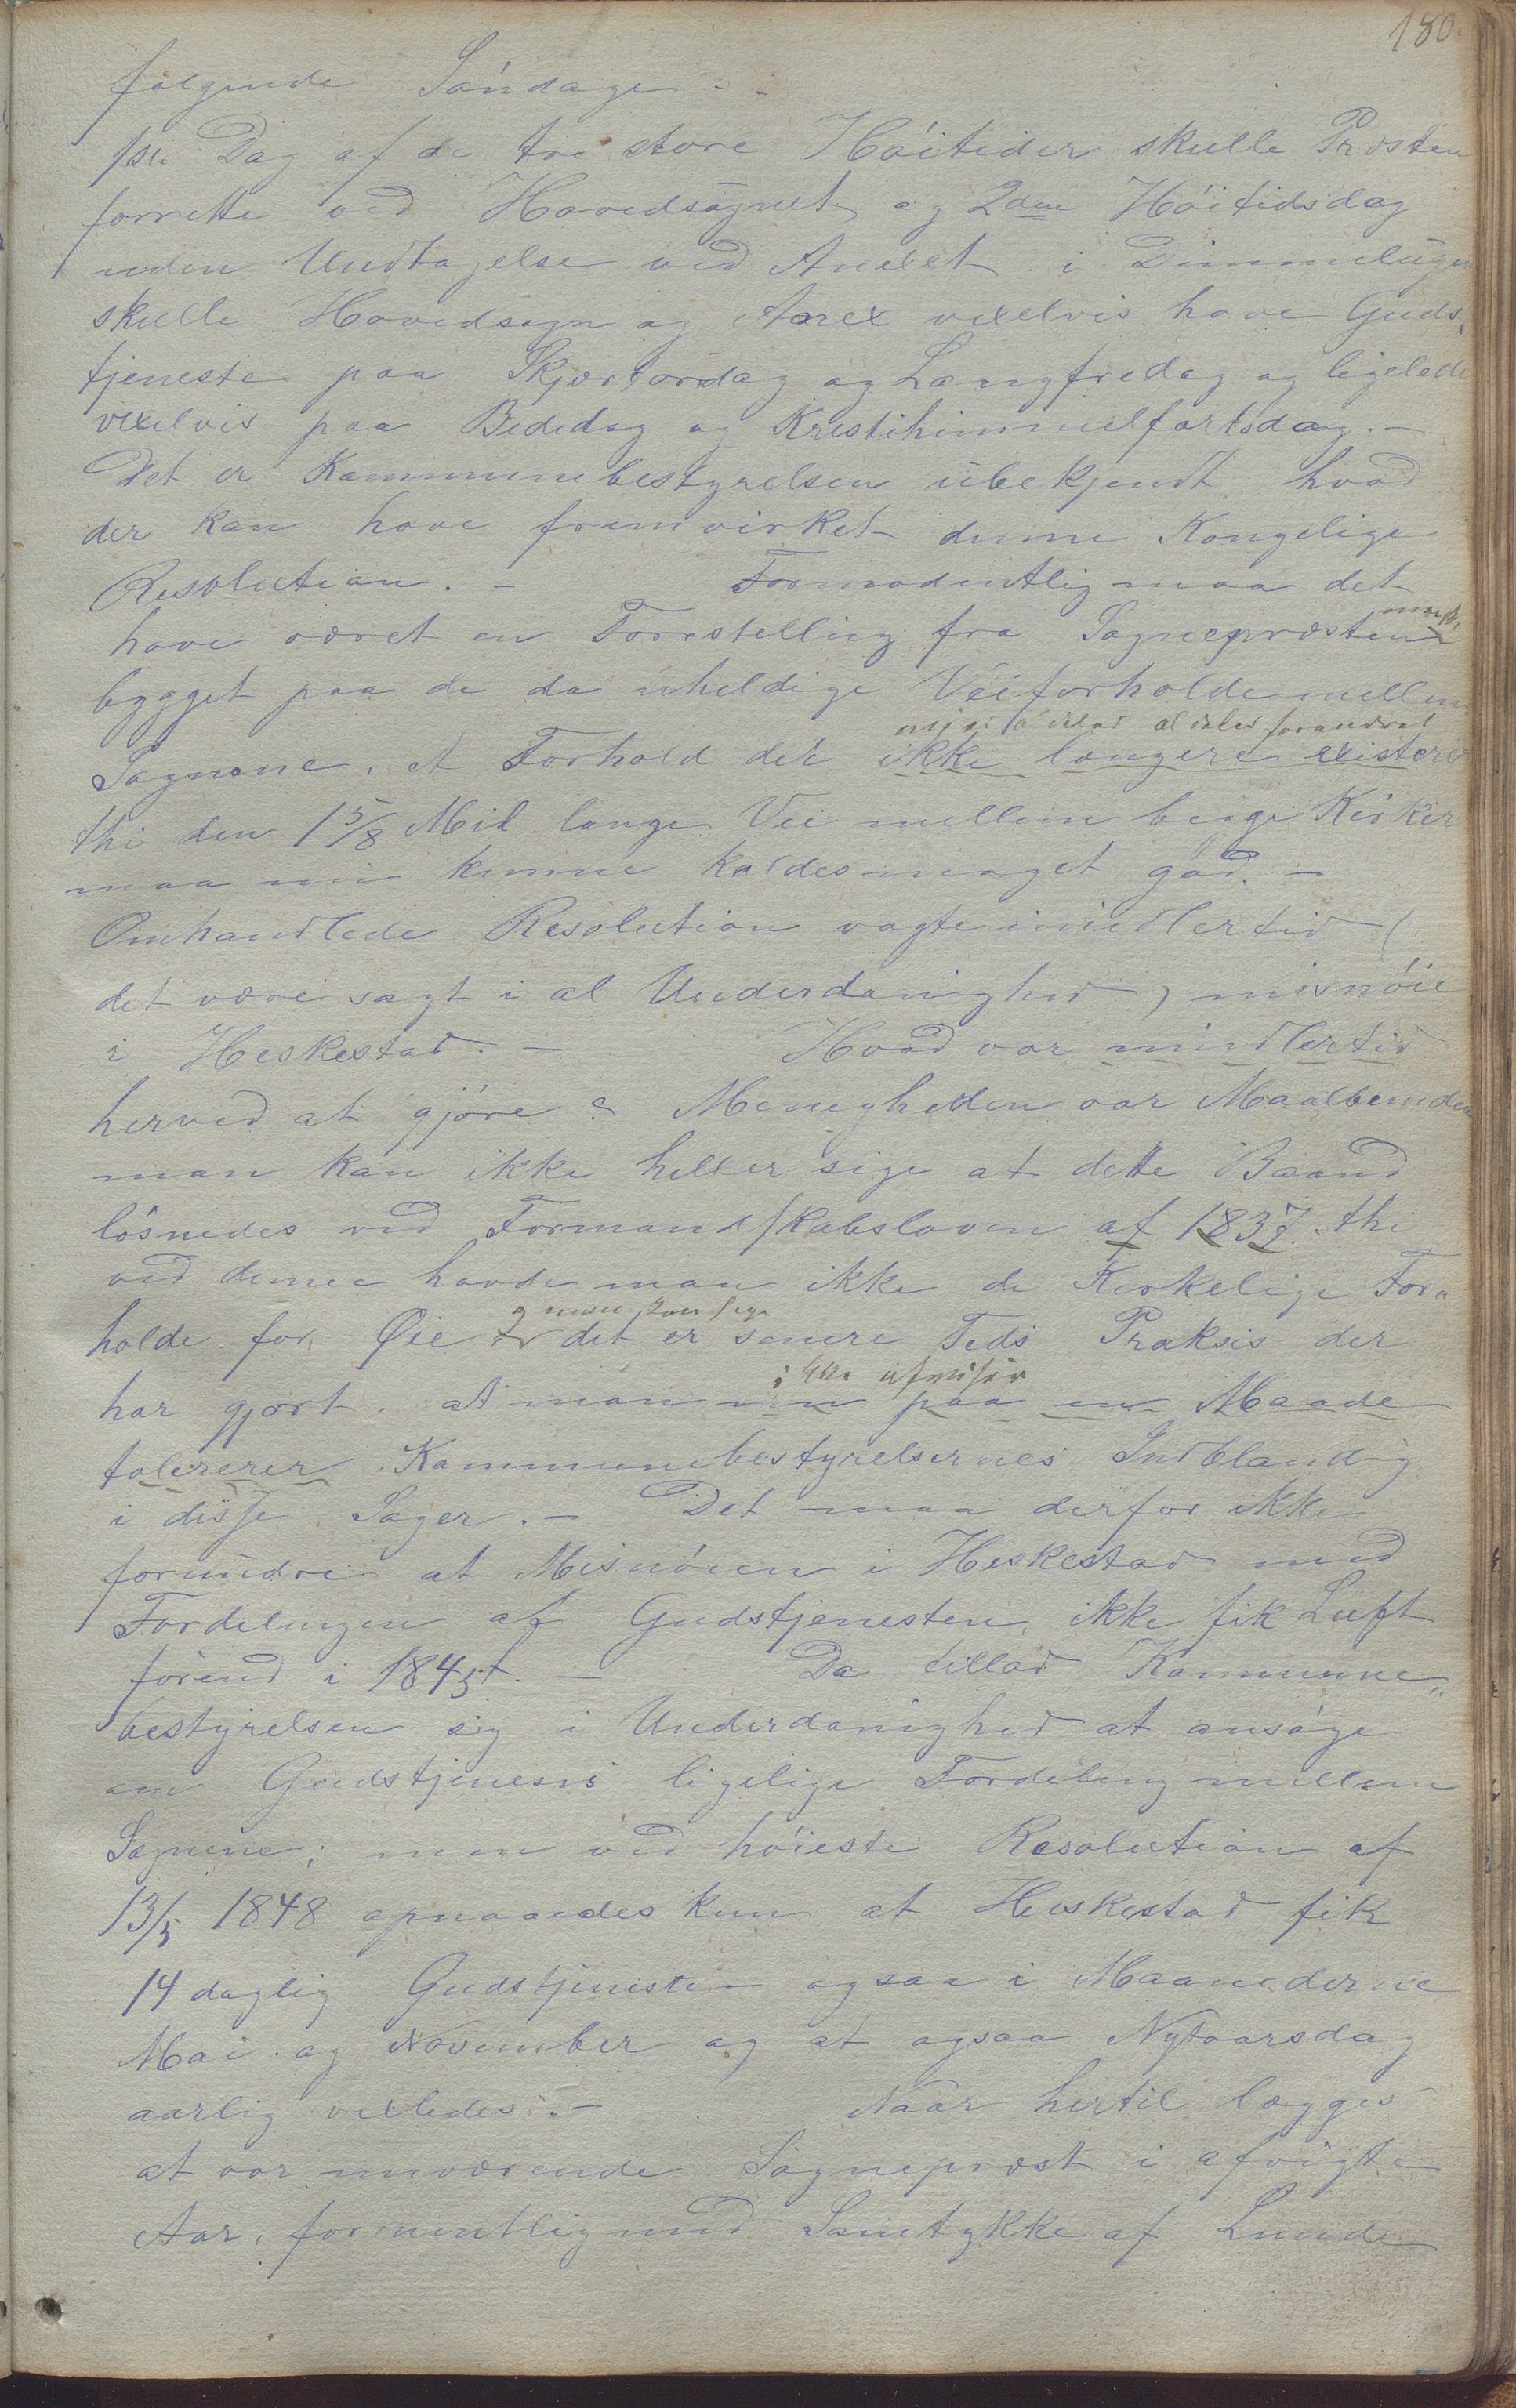 180.
følgende Søndage. -
1ste Dag af de tre store Høitider skulle Præsten
forrette ved Hovedsognet og 2den Høitidsdag
uden Undtagelse ved Anexet i Dimmelugen
skulle Hovedsogn og Anex vexelvis have Guds,
tjeneste paa Skjærtorsdag og Langfredag og ligelede
vexelvis paa Bededag og Kristihimmelfartsdag. -
Det er Kommunebestyrelsen ubekjendt hvad
der kan have fremvirket denne Kongelige
Resolution. - Formodentlig maa det
have været en Forestelling fra Sognepræsten
bygget paa de da uheldige Veiforholde mellem
aldeles forandret
Sognene, et Forhold der ikke længere existerer
thi den 1 5/8 Mil lange Vei mellem beige Kirker
maa nu kunne kaldes meget god. -
Omhandlede Resolution vagte imidlertid (
det være sagt i al Underdanighed ) misnøie
i Heskestad. - Hvad var imidlertid
herved at gjøre? Menigheden var Maalbunden
man kan ikke heller sige at dette Baand
løsnedes ved Formandskabsloven af 1837. thi
ved denne havde man ikke de Kirkelige For„
holde for Øie
man kan sige
det er senere Tids Praksis der
har gjort, at man nu paa en Maade
ikke afviser
tolererer Kommunebestyrelsernes Indblandig
i disse Sager. - Det maa derfor ikke
forundre at Misnøien i Heskestad med
Fordelingen af Gudstjenesten ikke fik Luft
førend i 1845. - Da tillod Kommune„
bestyrelsen sig i Underdanighed at ansøge
om Gudstjenesns ligelige Fordeling mellem
Sognene; men ved høieste Resolution af
13/5 1848 opnaaedes kun at Heskestad fik
14 daglig Gudstjeneste ogsaa i Maanederne
Mai og November og at ogsaa Nytaarsdag
aarlig vexledes. - Naar hertil lægges
at vor nuværende Sognepræst i afvigte
Aar, formentlig med Samtykke af Lunde